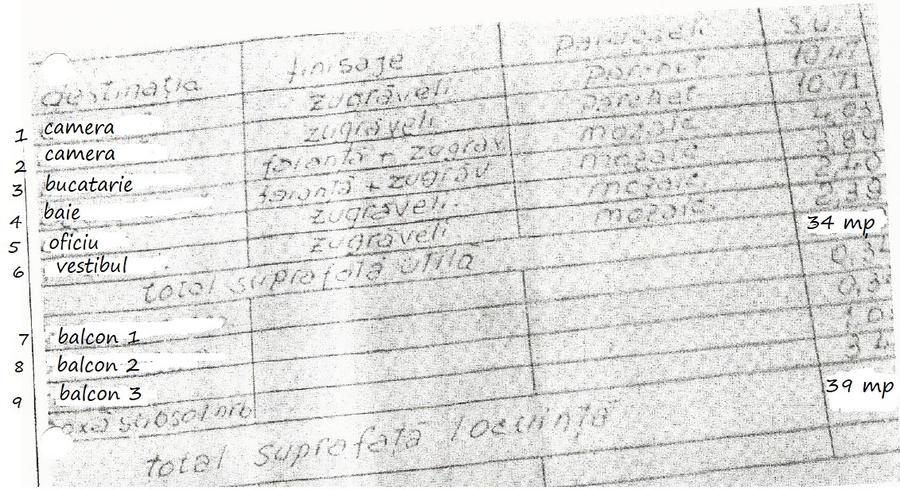 destinația finisaje pardoseli s.u.
1 camera zugrăveli parchet 10,47
2 camera zugrăveli parchet 10,71
3 bucatarie faianță + zugrăv mozaic
4 baie faianță + zugrăv mozaic
5 oficiu zugrăveli mozaic
6 vestibul zugrăveli mozaic
total suprafață utilă 34 mp
7 balcon 1
8 balcon 2
9 balcon 3
total suprafață locuință 39 mp